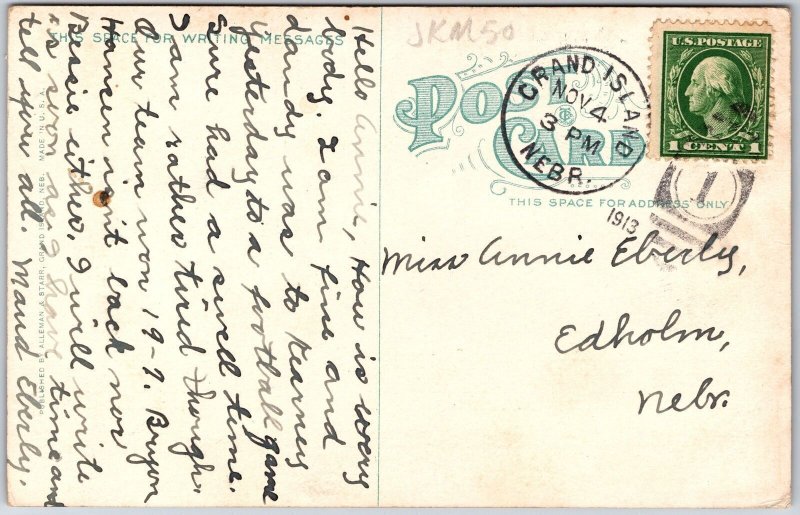 THIS SPACE FOR WRITING MESSAGES
Hello Annie, How is every
body. I am fine and
dandy was to Kearney
yesterday to a football game
Sure had a swell time.
I am rather tired though.
Our team won 19-7. Bryon
Hansen isn't back nor
Bessie either, I will write
as soon as I have time and
tell you all. Maud Eberly.
PUBLISHED BY ALLEMAN & STARR, GRAND ISLAND, NEB. MADE IN U.S.A.
JKM50
POST
CARD
THIS SPACE FOR ADDRESS ONLY
GRAND ISLAND
NOV 4
3 PM
NEBR.
1913
1
U.S. POSTAGE
1 CENT 1
Miss Annie Eberly,
Edholm,
Nebr.